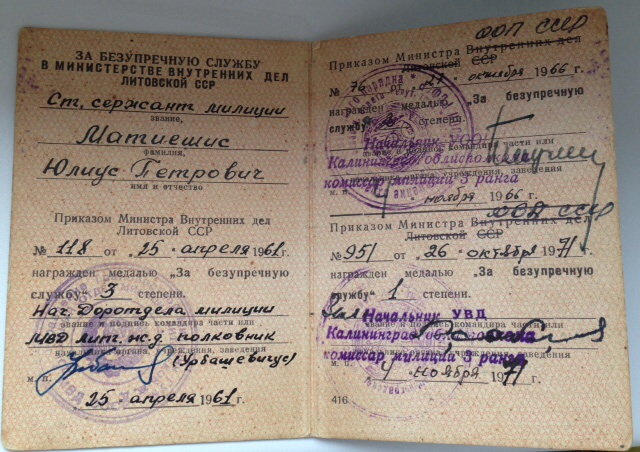 ЗА БЕЗУПРЕЧНУЮ СЛУЖБУ
В МИНИСТЕРСТВЕ ВНУТРЕННИХ ДЕЛ
ЛИТОВСКОЙ ССР
Ст. сержант милиции
звание,
Матиешис
фамилия,
Юлиус Петрович
имя и отчество
Приказом Министра Внутренних дел
Литовской ССР
№ 118 от "25" апреля 1961 г.
награжден медалью „За безупречную
службу" 3 степени.
Нач. Доротдела милиции
звание и подпись командира части или
МВД лит. ж.д. полковник
начальника органа, учреждения, заведения
м. п. (Урбашевичус)
"25" апреля 1961 г.
ООП СССР
Приказом Министра Внутренних дел
Литовской ССР
№ 76 от октября 1966 г.
награжден медалью „За безупречную
службу" 2 степени.
Начальник
звание и подпись командира части или
Калининград. облисполкома
начальника органа, учреждения, заведения
комиссар милиции 3 ранга
м. п. ноября 1966 г.
СССР
Приказом Министра Внутренних дел
Литовской ССР
№ 951 от "26" октября 1971 г.
награжден медалью „За безупречную
службу" 1 степени.
Начальник УВД
звание и подпись командира части или
Калининград. облисполкома
начальника органа, учреждения, заведения
комиссар милиции 3 ранга
м. п. ноября 1971 г.
416